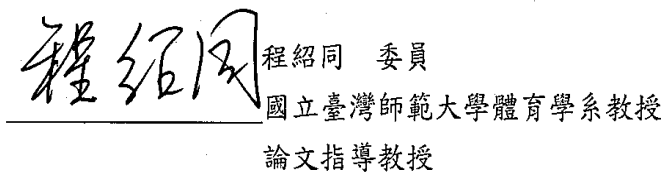 程紹同 程紹同 委員
國立臺灣師範大學體育學系教授
論文指導教授